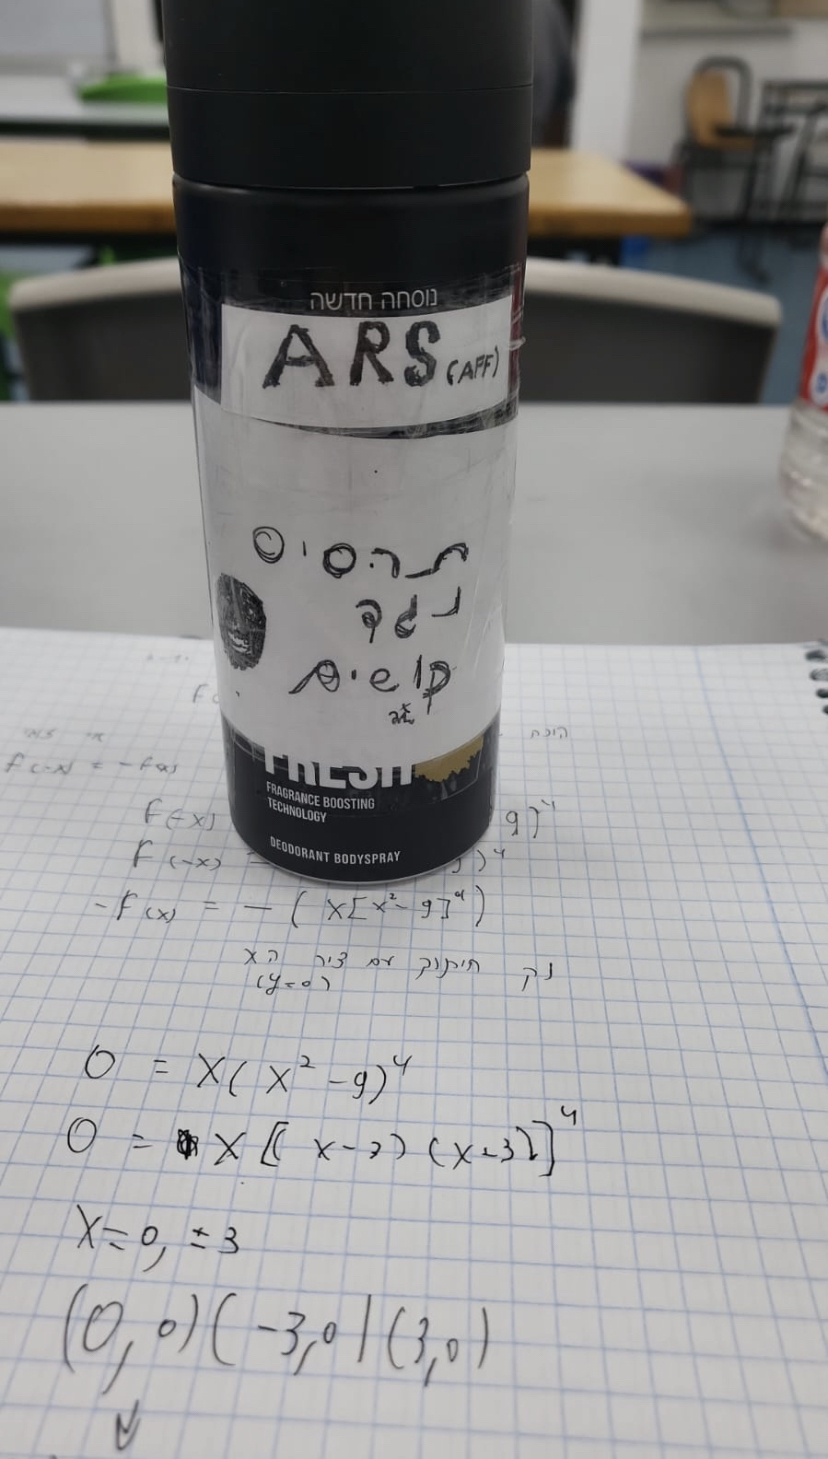 נוסחה חדשה
ARS (AFF)
תרסיס
נגד
קושים
FRESH
FRAGRANCE BOOSTING
TECHNOLOGY
DEODORANT BODYSPRAY
f(-x) = -f(x)
f(-x) 9)⁴
f(-x) = )⁴
-f(x) = - ( x[x²-9]⁴)
נק חיתוך עם ציר הx
(y=0)
0 = x(x²-9)⁴
0 = x[(x-3)(x+3)]⁴
x=0, ±3
(0,0)(-3,0)(3,0)